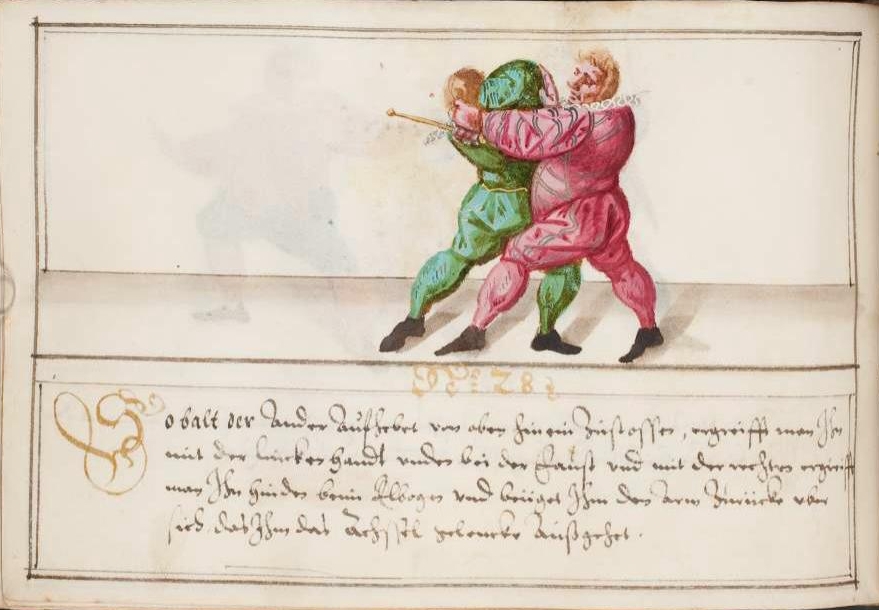 No: 28:
So balt der Ander Aufhebet von oben hinein Zustossen, ergreifft man Ihn
mit der lincken handt unden bei der Faust und mit der rechten ergreifft
man Ihn hinden beim Elbogen und beuget Ihm den arm Zurücke uber
sich, das Ihm das Achssel gelencke Außgehet.